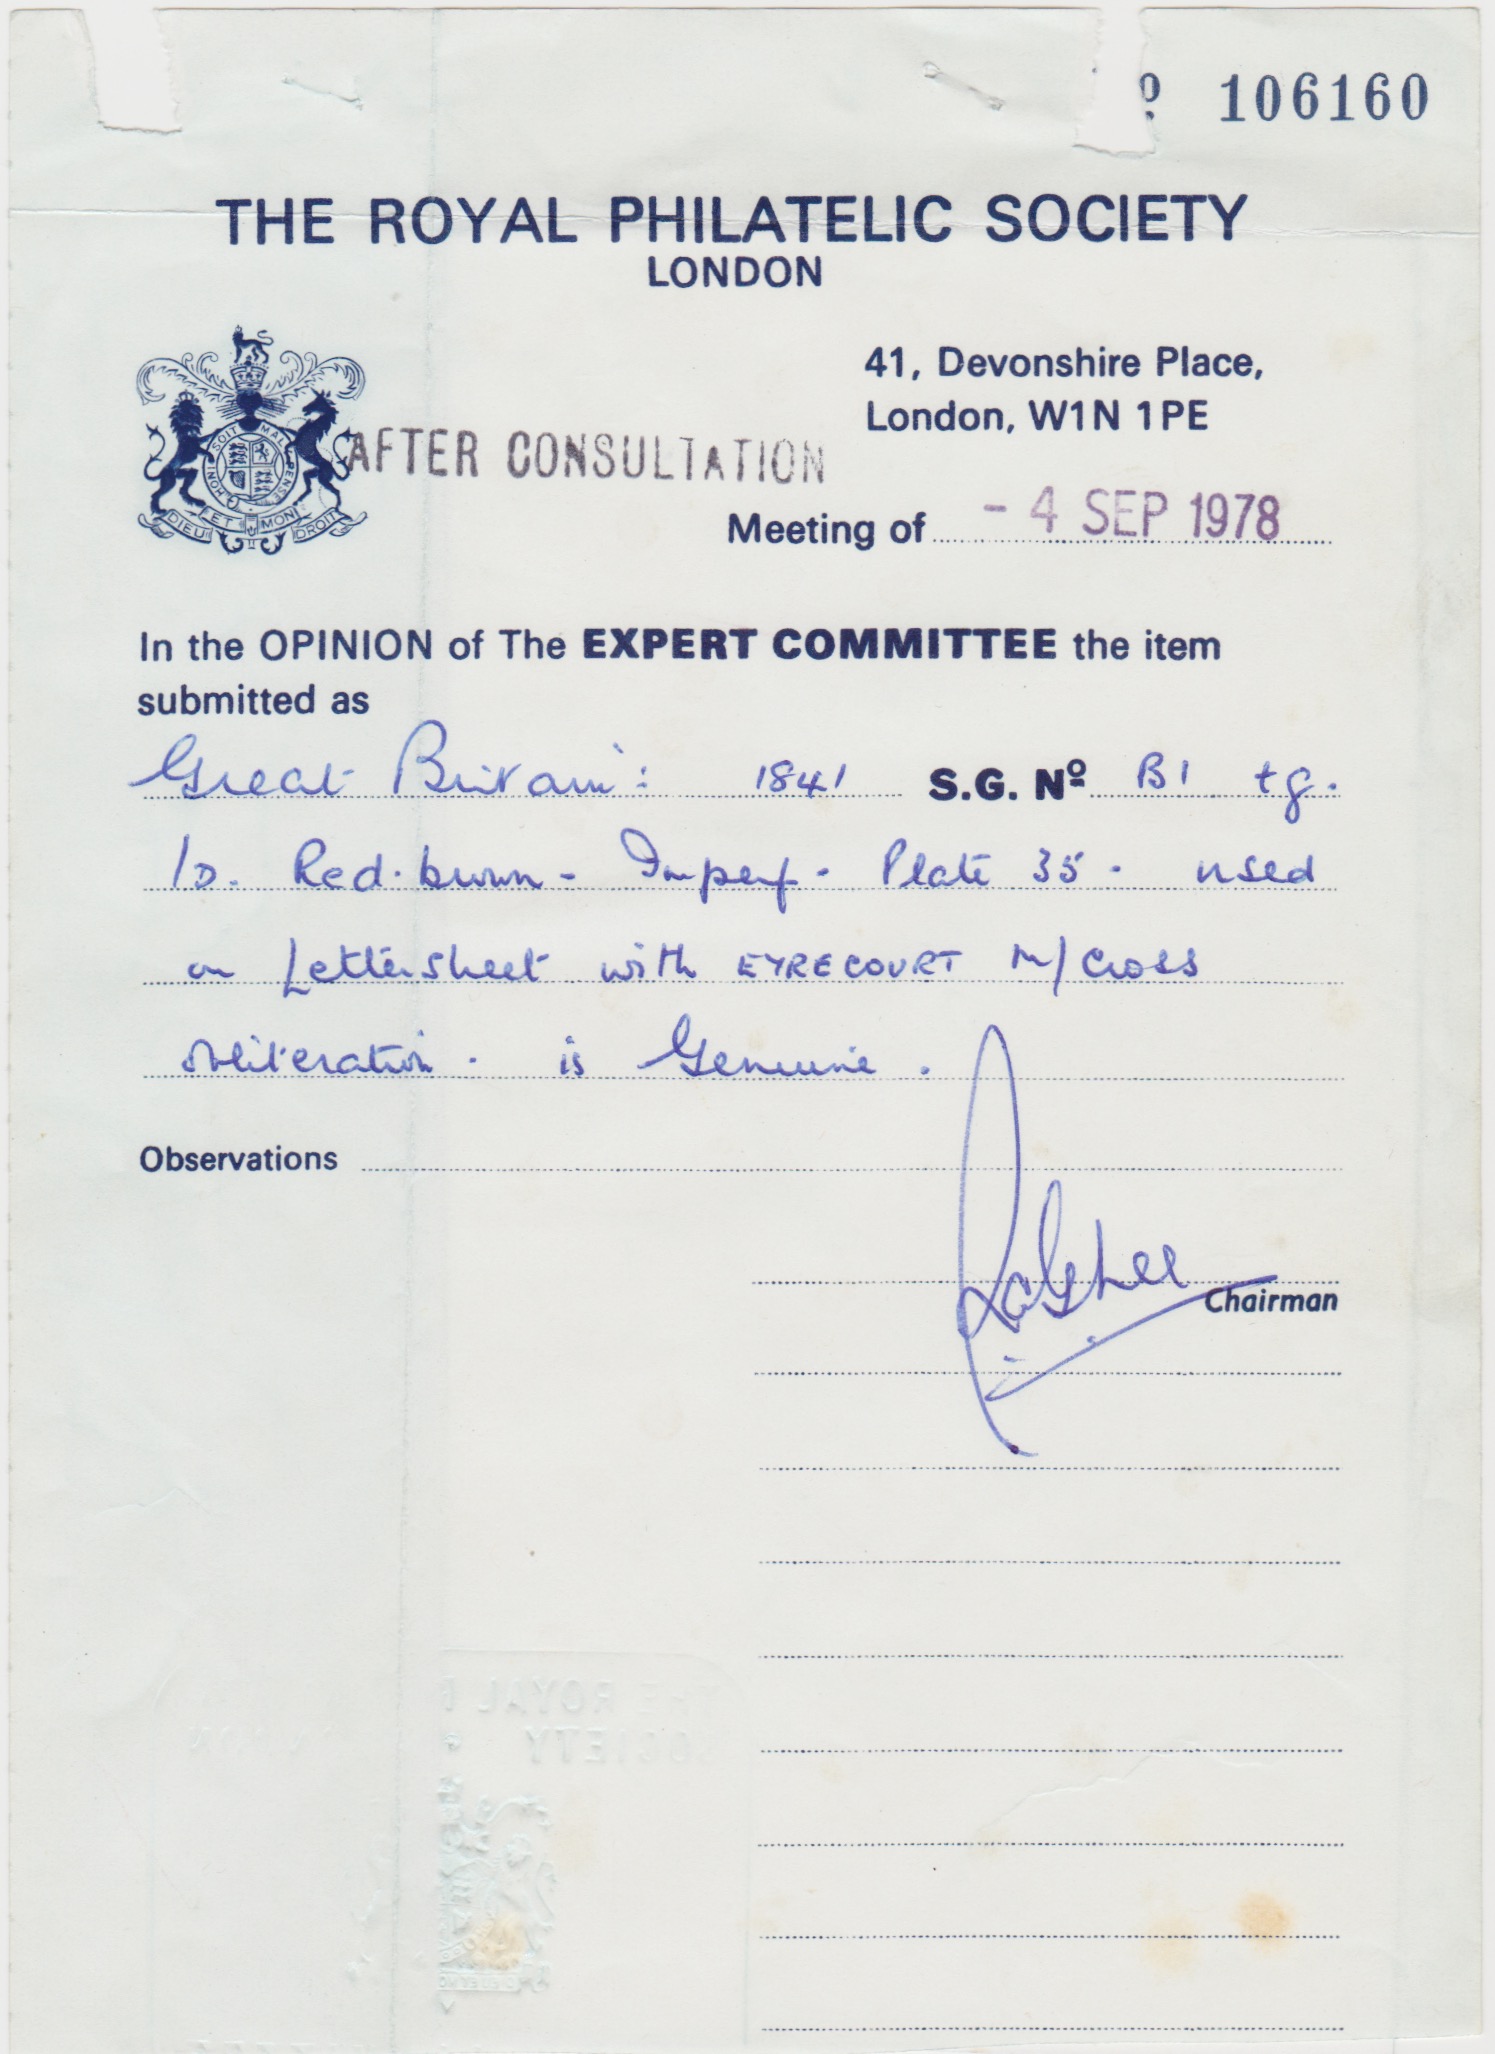 º 106160
THE ROYAL PHILATELIC SOCIETY
LONDON
41, Devonshire Place,
London, W1N 1PE
HONI SOIT MAL Y PENSE
DIEU ET MON DROIT
AFTER CONSULTATION
Meeting of - 4 SEP 1978
In the OPINION of The EXPERT COMMITTEE the item
submitted as
Great Britain: 1841 S.G. Nº B1 tg.
1D. Red-brown - Imperf - Plate 35 - used
on Lettersheet with EYRECOURT M/Cross
obliteration - is Genuine.
Observations
Chairman
THE ROYAL P
SOCIETY